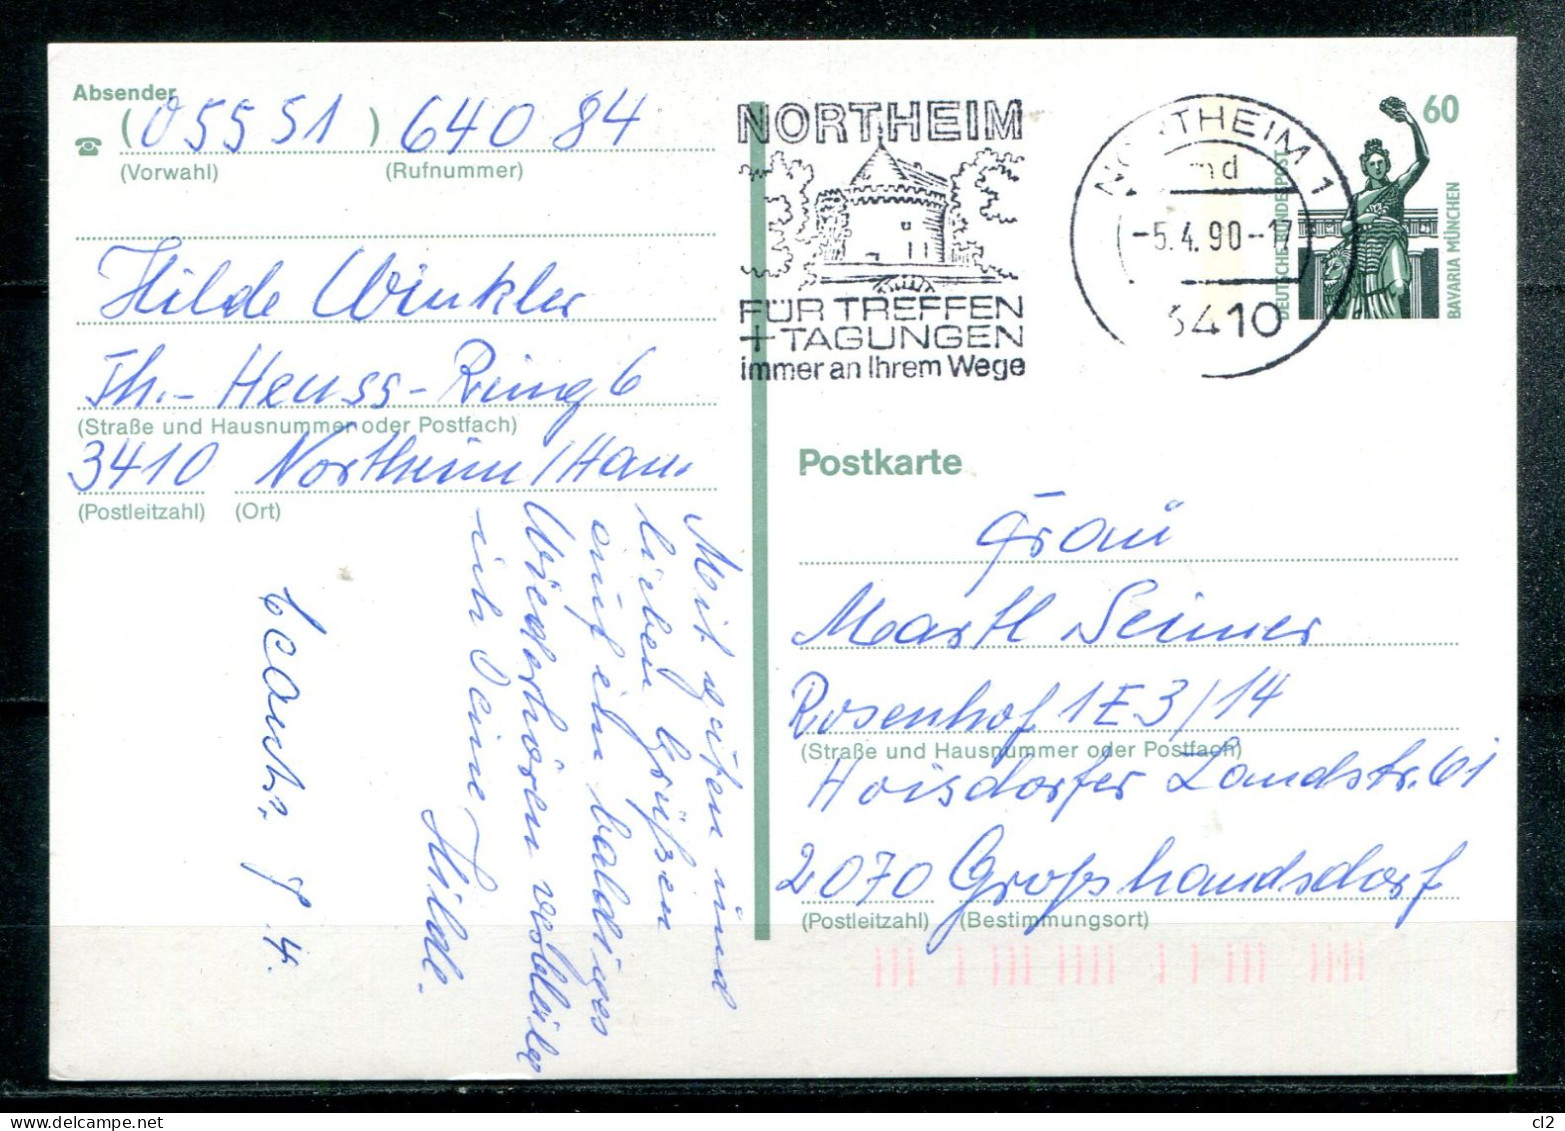 Absender
(05551) 64084
(Vorwahl) (Rufnummer)
Hilde Winkler
Th.-Heuss-Ring 6
(Straße und Hausnummer oder Postfach)
3410 Northeim/Han.
(Postleitzahl) (Ort)
Mit guten und
lieben Grüßen
auf ein baldiges
Wiederhören verbleibe
ich Deine
Hilde.
4.
NORTHEIM
FÜR TREFFEN
+ TAGUNGEN
immer an Ihrem Wege
NORTHEIM 1
md
-5.4.90--17
3410
60
DEUTSCHE BUNDESPOST
BAVARIA MÜNCHEN
Postkarte
Frau
Martl Seimer
Rosenhof 1 E3/14
(Straße und Hausnummer oder Postfach)
Hoisdorfer Landstr. 61
2070 Großhansdorf
(Postleitzahl) (Bestimmungsort)
cl2